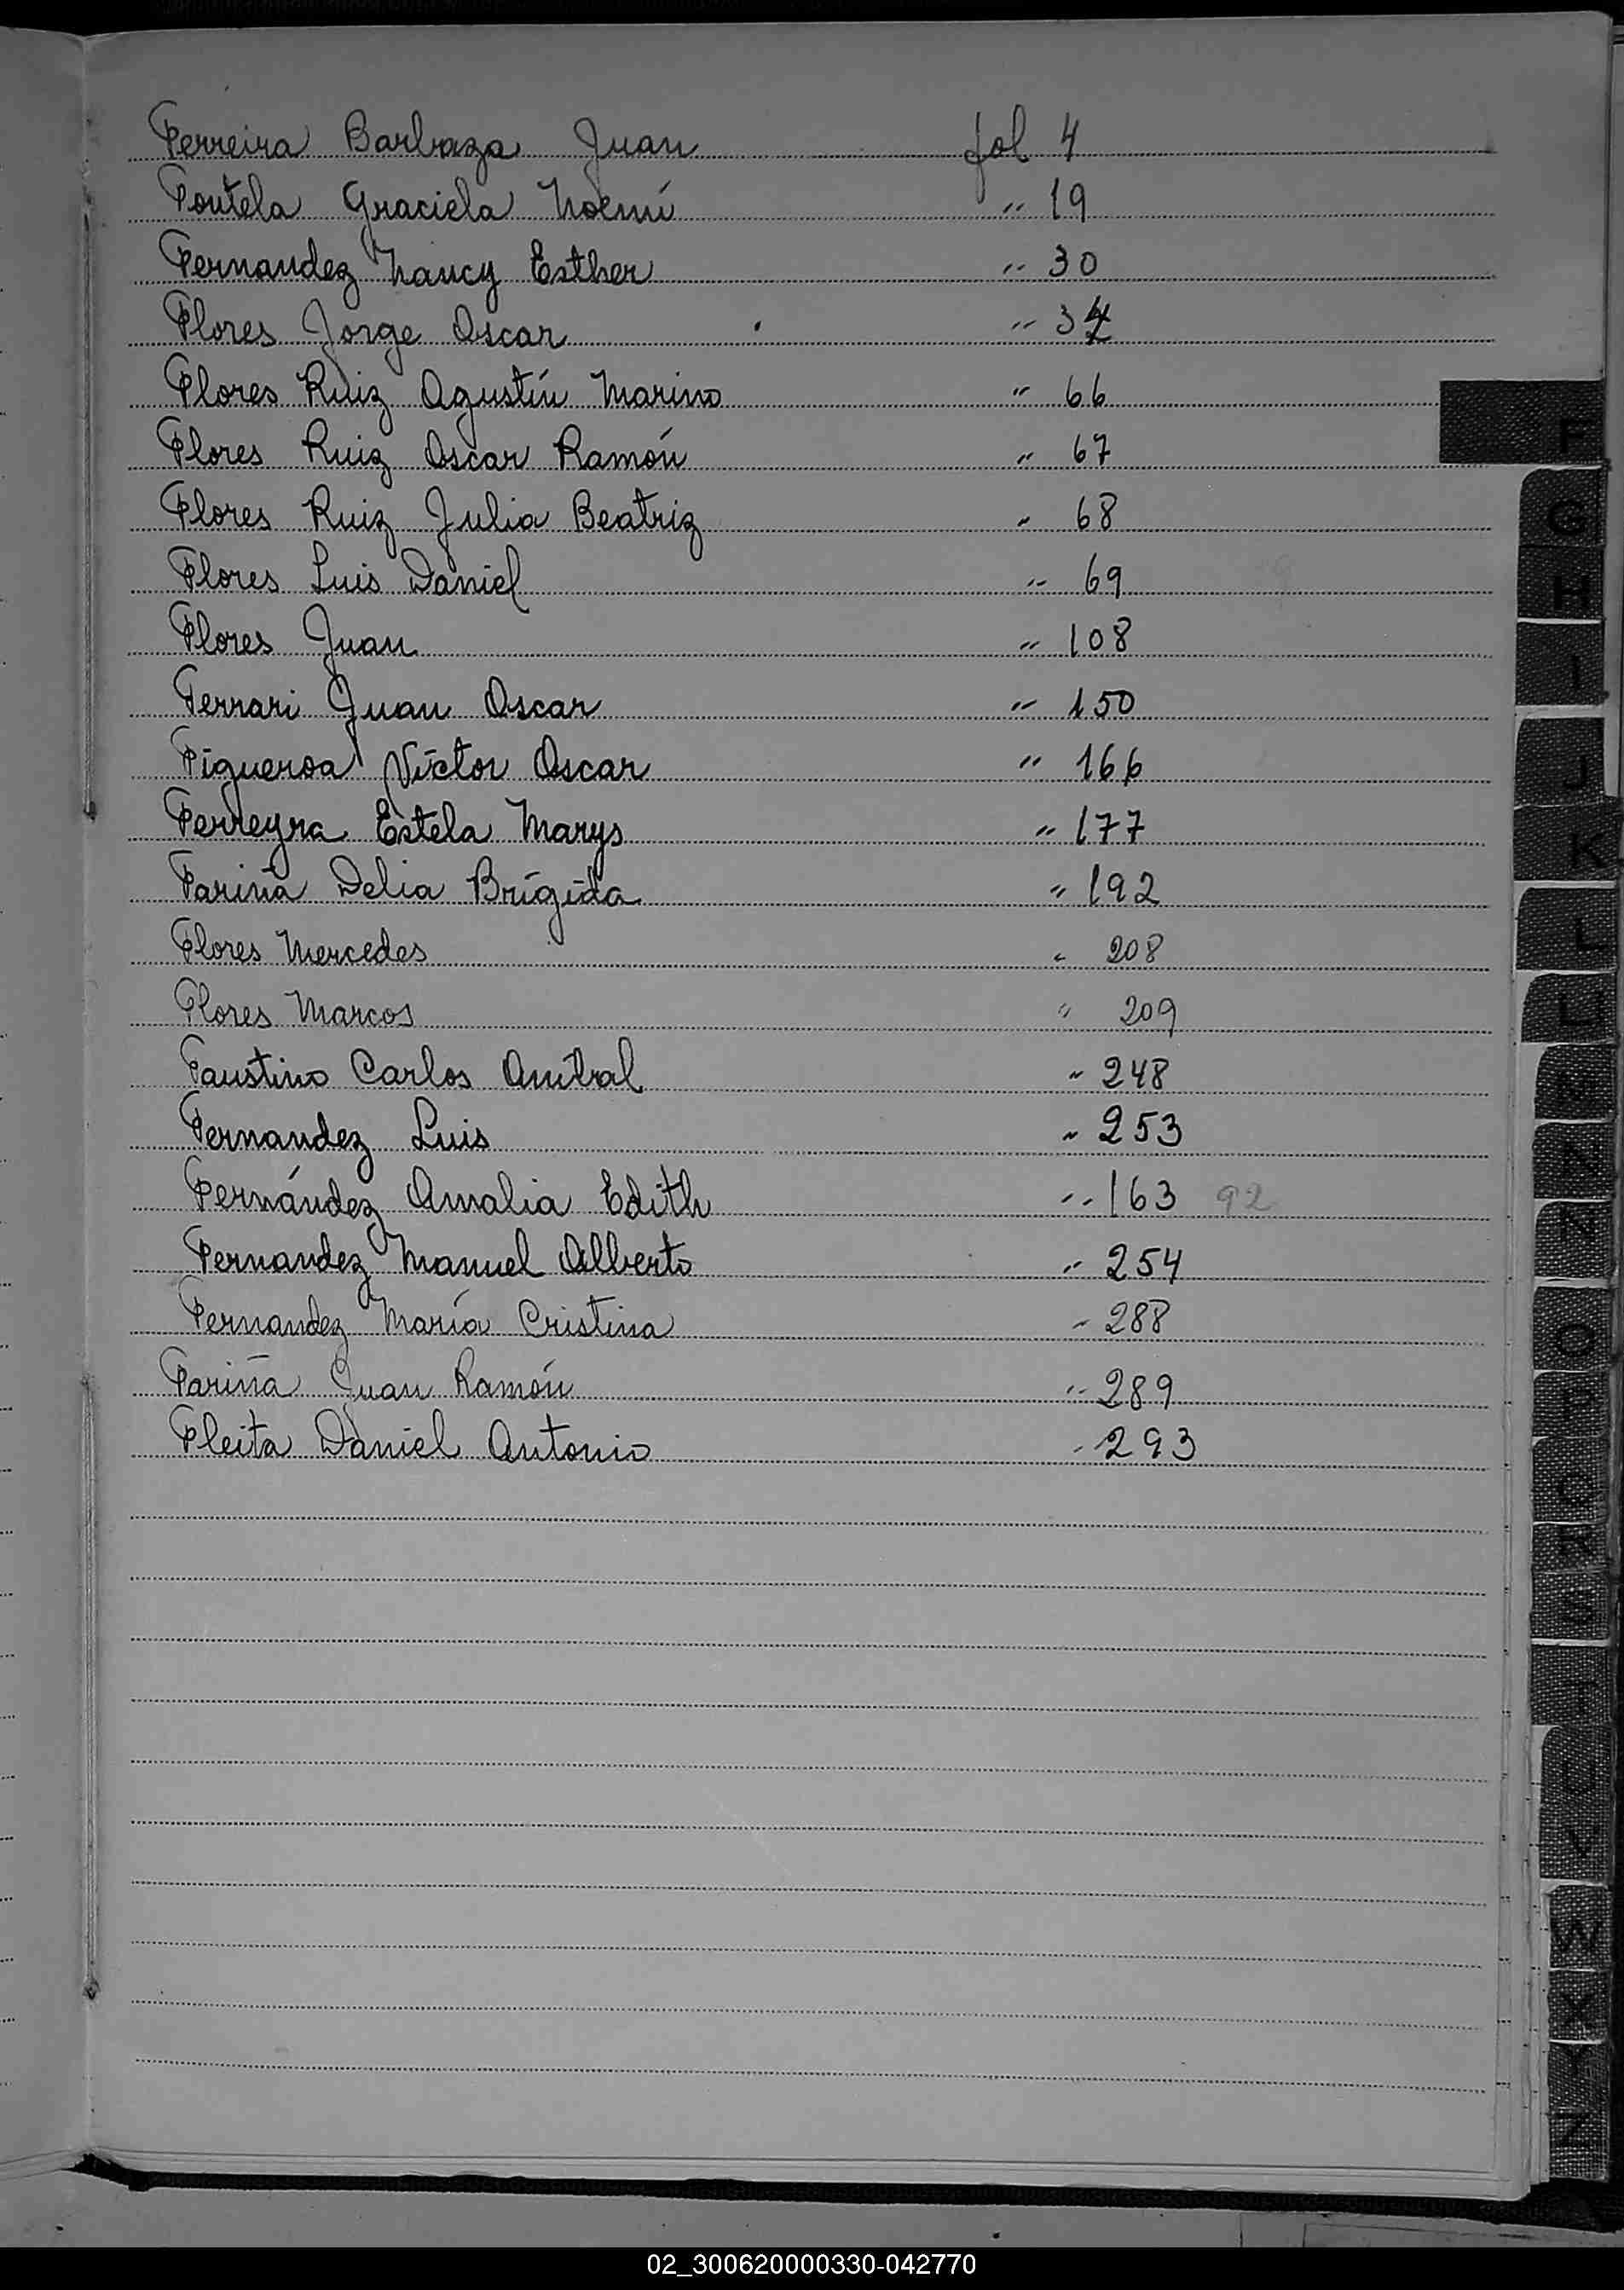 Ferreira Barbaza Juan fol 4
Fontela Graciela Noemí " 19
Fernandez Nancy Esther " 30
Flores Jorge Oscar " 34
Flores Ruiz Agustín Marino " 66
Flores Ruiz Oscar Ramón " 67
Flores Ruiz Julia Beatriz " 68
Flores Luis Daniel " 69
Flores Juan " 108
Ferrari Juan Oscar " 150
Figueroa Víctor Oscar " 166
Ferreyra Estela Marys " 177
Fariña Delia Brígida " 192
Flores Mercedes " 208
Flores Marcos " 209
Faustino Carlos Aníbal " 248
Fernandez Luis " 253
Fernández Amalia Edith " 163 92
Fernandez Manuel Alberto " 254
Fernandez María Cristina " 288
Fariña Juan Ramón " 289
Fleita Daniel Antonio " 293
F
G
H
I
J
K
L
LL
M
N
Ñ
O
P
Q
R
S
T
U
V
W
X
Y
Z
02_300620000330-042770